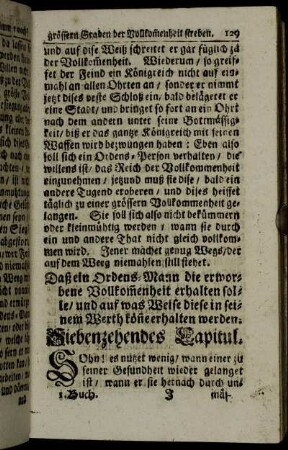 grössern Graden der Vollkom̃enheit streben. 129
und auf dise Weiß schreitet er gar füglich zu
der Vollkom̃enheit. Wiederum / so greif-
fet der Feind ein Königreich nicht auf ein-
mahl an allen Ohrten an / sonder er nimmt
jetzt dises veste Schloß ein / bald belägeret er
eine Stadt / und bringet so fort an ein Ohrt
nach dem andern unter seine Bottmässig-
keit / biß er das gantze Königreich mit seinen
Waffen wird bezwungen haben: Eben also
soll sich ein Ordens-Person verhalten / die
willens ist / das Reich der Vollkommenheit
einzunehmen / jetzund muß sie dise / bald ein
andere Tugend eroberen / und dises heisset
täglich zu einer grössern Vollkommenheit ge-
langen. Sie soll sich also nicht bekümmern
oder kleinmühtig werden / wann sie durch
ein und andere That nicht gleich vollkom-
men wird. Jener machet genug Wegs / der
auf dem Weeg niemahlen still stehet.
Daß ein Ordens-Mann die erwor-
bene Vollkom̃enheit erhalten sol-
le / und auf was Weise diese in sei-
nem Werth köñe erhalten werden.
Siebenzehendes Capitul.
Sohn! es nutzet wenig / wann einer zu
seiner Gesundheit wieder gelanget
ist / wann er sie hernach durch un-
1. Buch. J mäs-